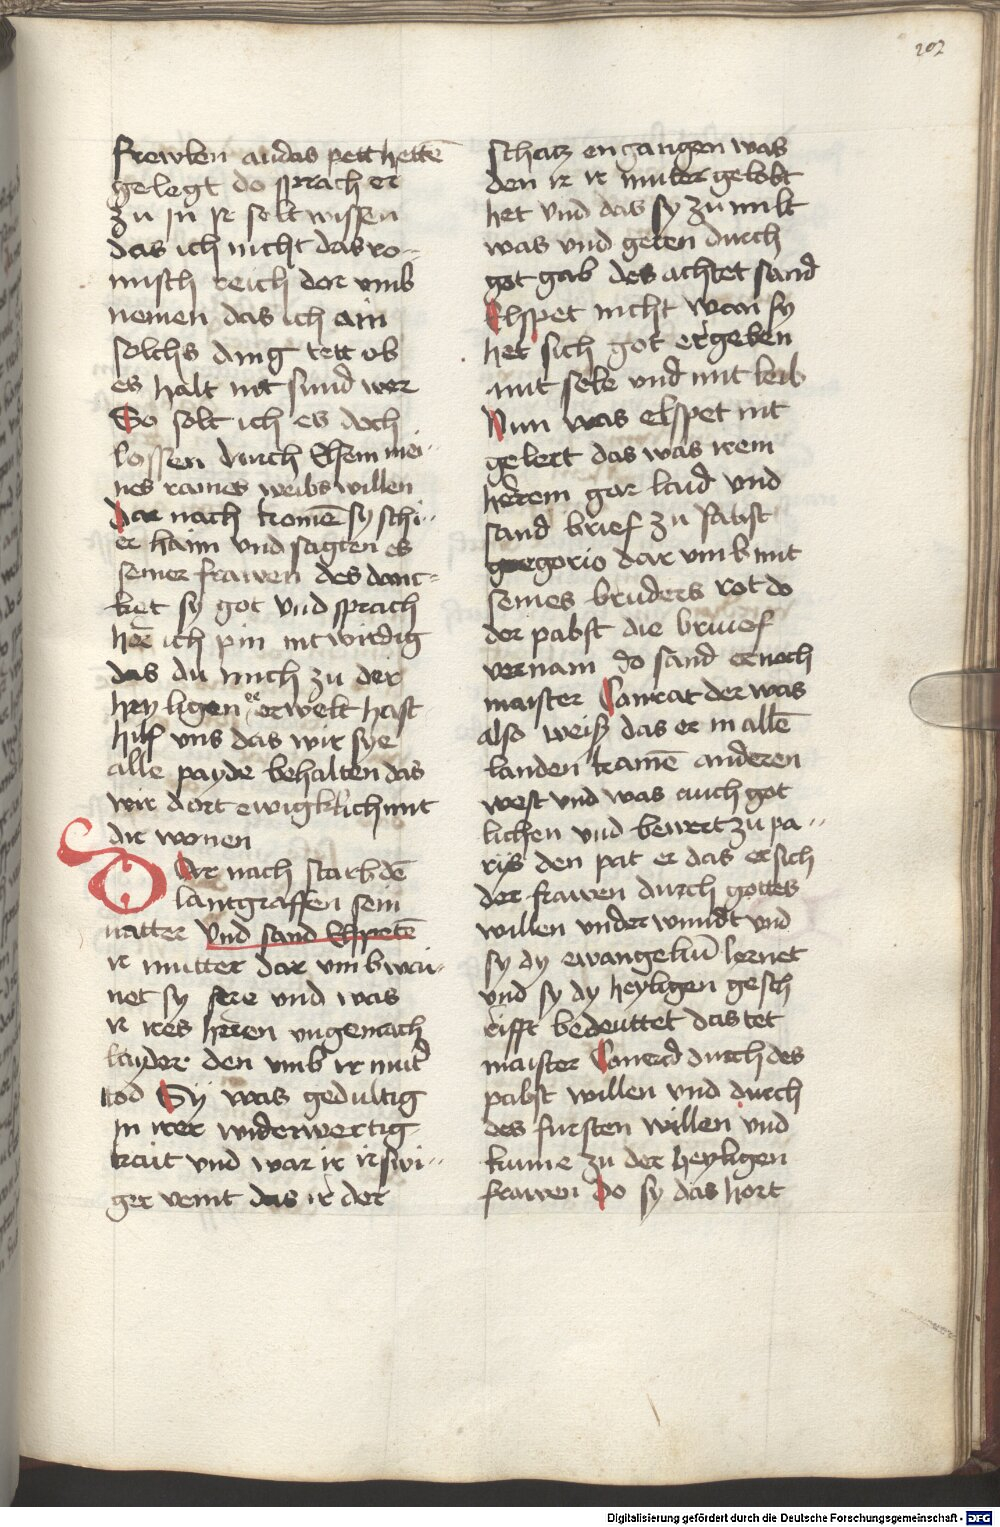 207
frewlen an das pett hettē
gelegt do sprach er
zu in ir solt wissen
das ich nicht das ro-
misch reich dar umb
nemen das ich ain
solchs ding tett ob
es halt nit sund wer
So solt ich es doch
lossen durch Elsem mei-
nes raines weibs willen
dar nach komē sy schi-
er haim vnd sagten es
seiner frawen des danc-
ket sy got vnd sprach
her ich pin nit wirdig
das du mich zu der
heyligen ee erwelt hast
hilf vns das wir sye
alle payde behalten das
wir dort ewigklich mit
dir wonen
Dar nach starb dē
lantgraffen sein
vatter Vnd sand Elspetē
ir mutter dar vmb wai-
net sy sere vnd was
ir ires heren vngemach
layder den vmb ir mut
tod Sy was gedultig
in irer widerwertig
kait vnd war ir ir swi-
ger veint das ir der
schatz engangen was
den ir ir muter gelobt
het vnd das sy zu milt
was vnd geren durch
got gab des achtet sand
Elspet nicht wan sy
het sich got ergeben
mit sele vnd mit leib
Nun was elspet nit
gelert das was irem
herem gar laid vnd
sand brief zu pabst
gregorio dar vmb mit
seines bruders rot do
der pabst die brief
vernam do sand er noch
maister Conrat der was
also weiß das er in allē
landen kainē anderen
west vnd was auch got
lichen vnd bewert zu pa-
ris den pat er das er sich
der frawen durch gottes
willen vnder wundt vnd
sy dy ewangeliū lernet
vnd sy dy heyligen gesch
rifft bedeuttet das tet
maister Conerd durch des
pabst willen vnd durch
des fursten willen vnd
kume zu der heyligen
frawen Do sy das hort
Digitalisierung gefördert durch die Deutsche Forschungsgemeinschaft - DFG